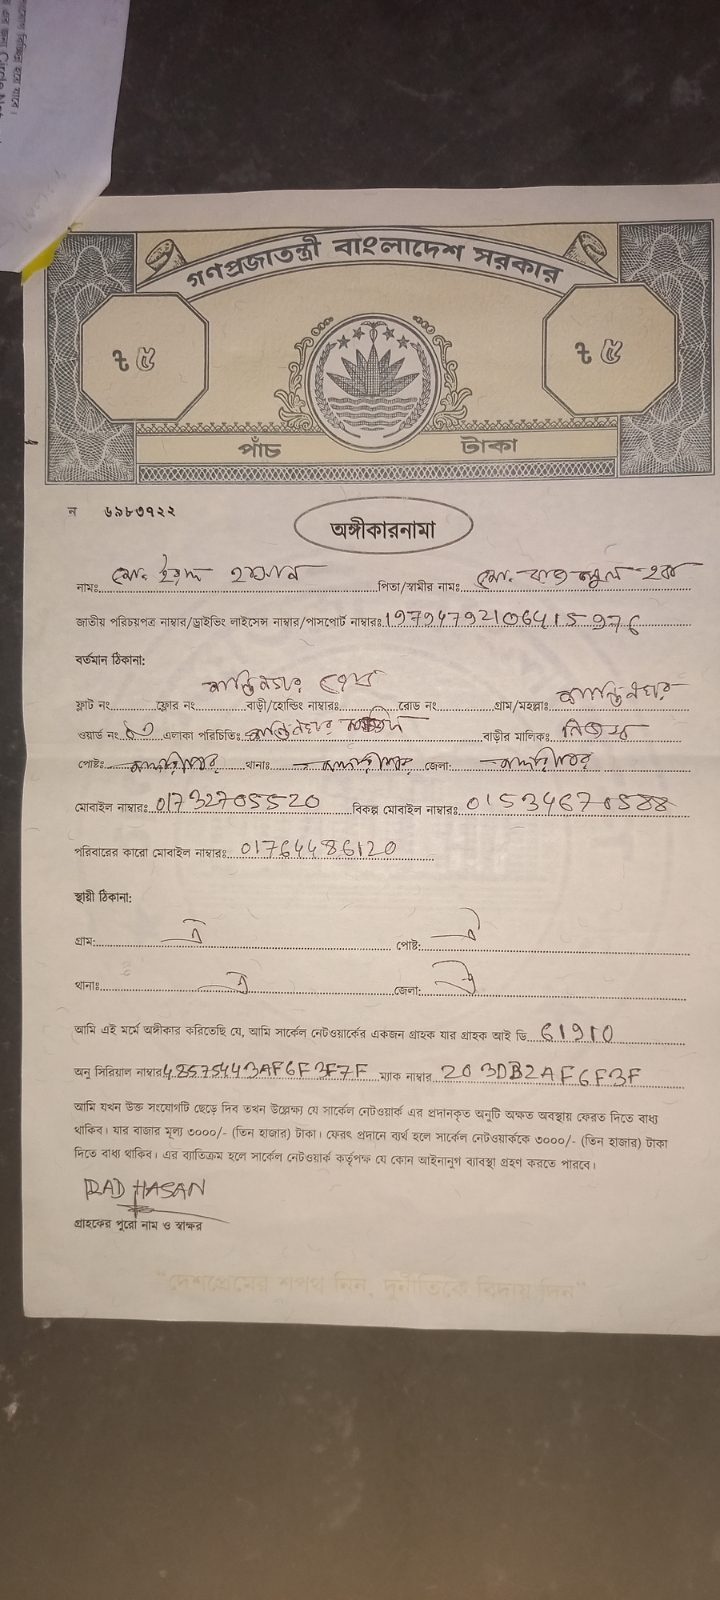 গণপ্রজাতন্ত্রী বাংলাদেশ সরকার
৳ ৫ ৳ ৫
পাঁচ টাকা
ন ৬৯৮৩৭২২
অঙ্গীকারনামা
নামঃ মো. ইরাদ হাসান পিতা/স্বামীর নামঃ মো.
জাতীয় পরিচয়পত্র নাম্বার/ড্রাইভিং লাইসেন্স নাম্বার/পাসপোর্ট নাম্বারঃ
বর্তমান ঠিকানা:
ফ্লাট নং ফ্লোর নং বাড়ী/হোল্ডিং নাম্বারঃ রোড নং গ্রাম/মহল্লাঃ
ওয়ার্ড নং এলাকা পরিচিতিঃ বাড়ীর মালিকঃ নিজস্ব
পোষ্টঃ থানাঃ জেলা:
মোবাইল নাম্বারঃ 01732705520 বিকল্প মোবাইল নাম্বারঃ
পরিবারের কারো মোবাইল নাম্বারঃ 01764486120
স্থায়ী ঠিকানা:
গ্রাম: ঐ পোষ্ট: ঐ
থানাঃ ঐ জেলা: ঐ
আমি এই মর্মে অঙ্গীকার করিতেছি যে, আমি সার্কেল নেটওয়ার্কের একজন গ্রাহক যার গ্রাহক আই ডি 61910
অনু সিরিয়াল নাম্বার 48575443AF6F3F7F ম্যাক নাম্বার 203DB2AF6F3F
আমি যখন উক্ত সংযোগটি ছেড়ে দিব তখন উল্লেখ্য যে সার্কেল নেটওয়ার্ক এর প্রদানকৃত অনুটি অক্ষত অবস্থায় ফেরত দিতে বাধ্য
থাকিব। যার বাজার মূল্য ৩০০০/- (তিন হাজার) টাকা। ফেরৎ প্রদানে ব্যর্থ হলে সার্কেল নেটওয়ার্ককে ৩০০০/- (তিন হাজার) টাকা
দিতে বাধ্য থাকিব। এর ব্যতিক্রম হলে সার্কেল নেটওয়ার্ক কর্তৃপক্ষ যে কোন আইনানুগ ব্যাবস্থা গ্রহণ করতে পারবে।
IRAD HASAN
গ্রাহকের পুরো নাম ও স্বাক্ষর
"দেশপ্রেমের শপথ নিন, দুর্নীতিকে বিদায় দিন"